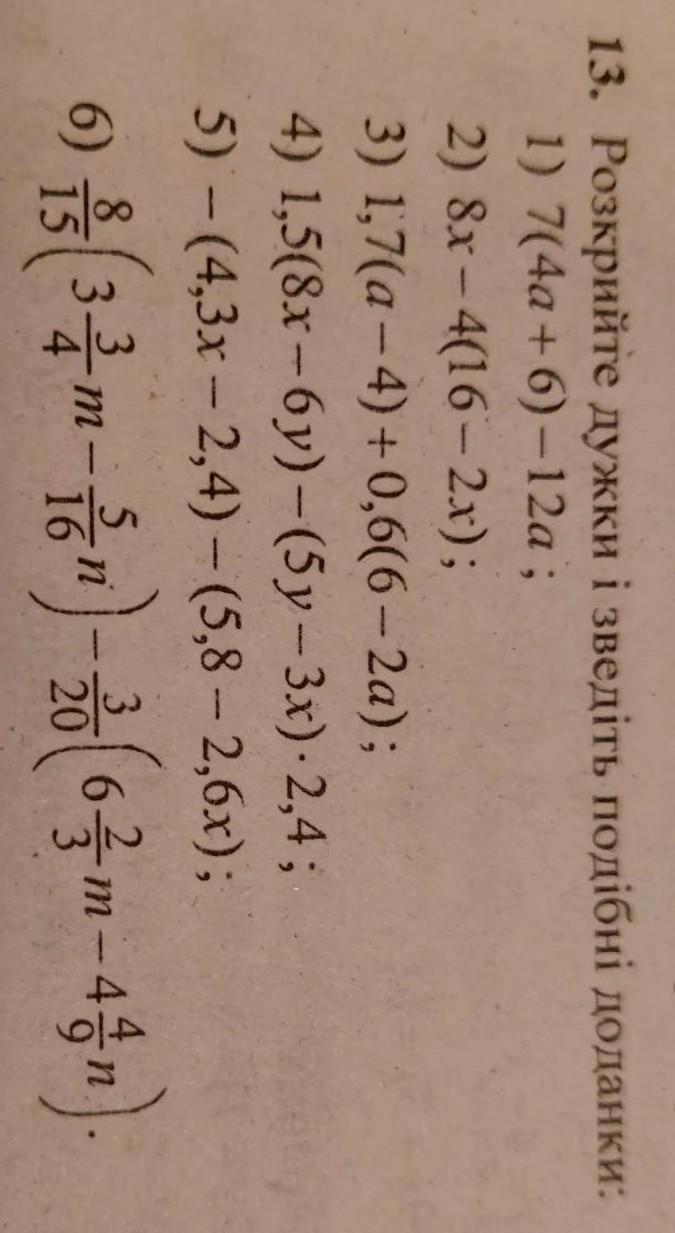 13. Розкрийте дужки і зведіть подібні доданки:
1) 7(4a + 6) – 12a ;
2) 8x – 4(16 – 2x) ;
3) 1,7(a – 4) + 0,6(6 – 2a) ;
4) 1,5(8x – 6y) – (5y – 3x) · 2,4 ;
5) – (4,3x – 2,4) – (5,8 – 2,6x) ;
6) 8/15 (3 3/4 m – 5/16 n) – 3/20 (6 2/3 m – 4 4/9 n) .